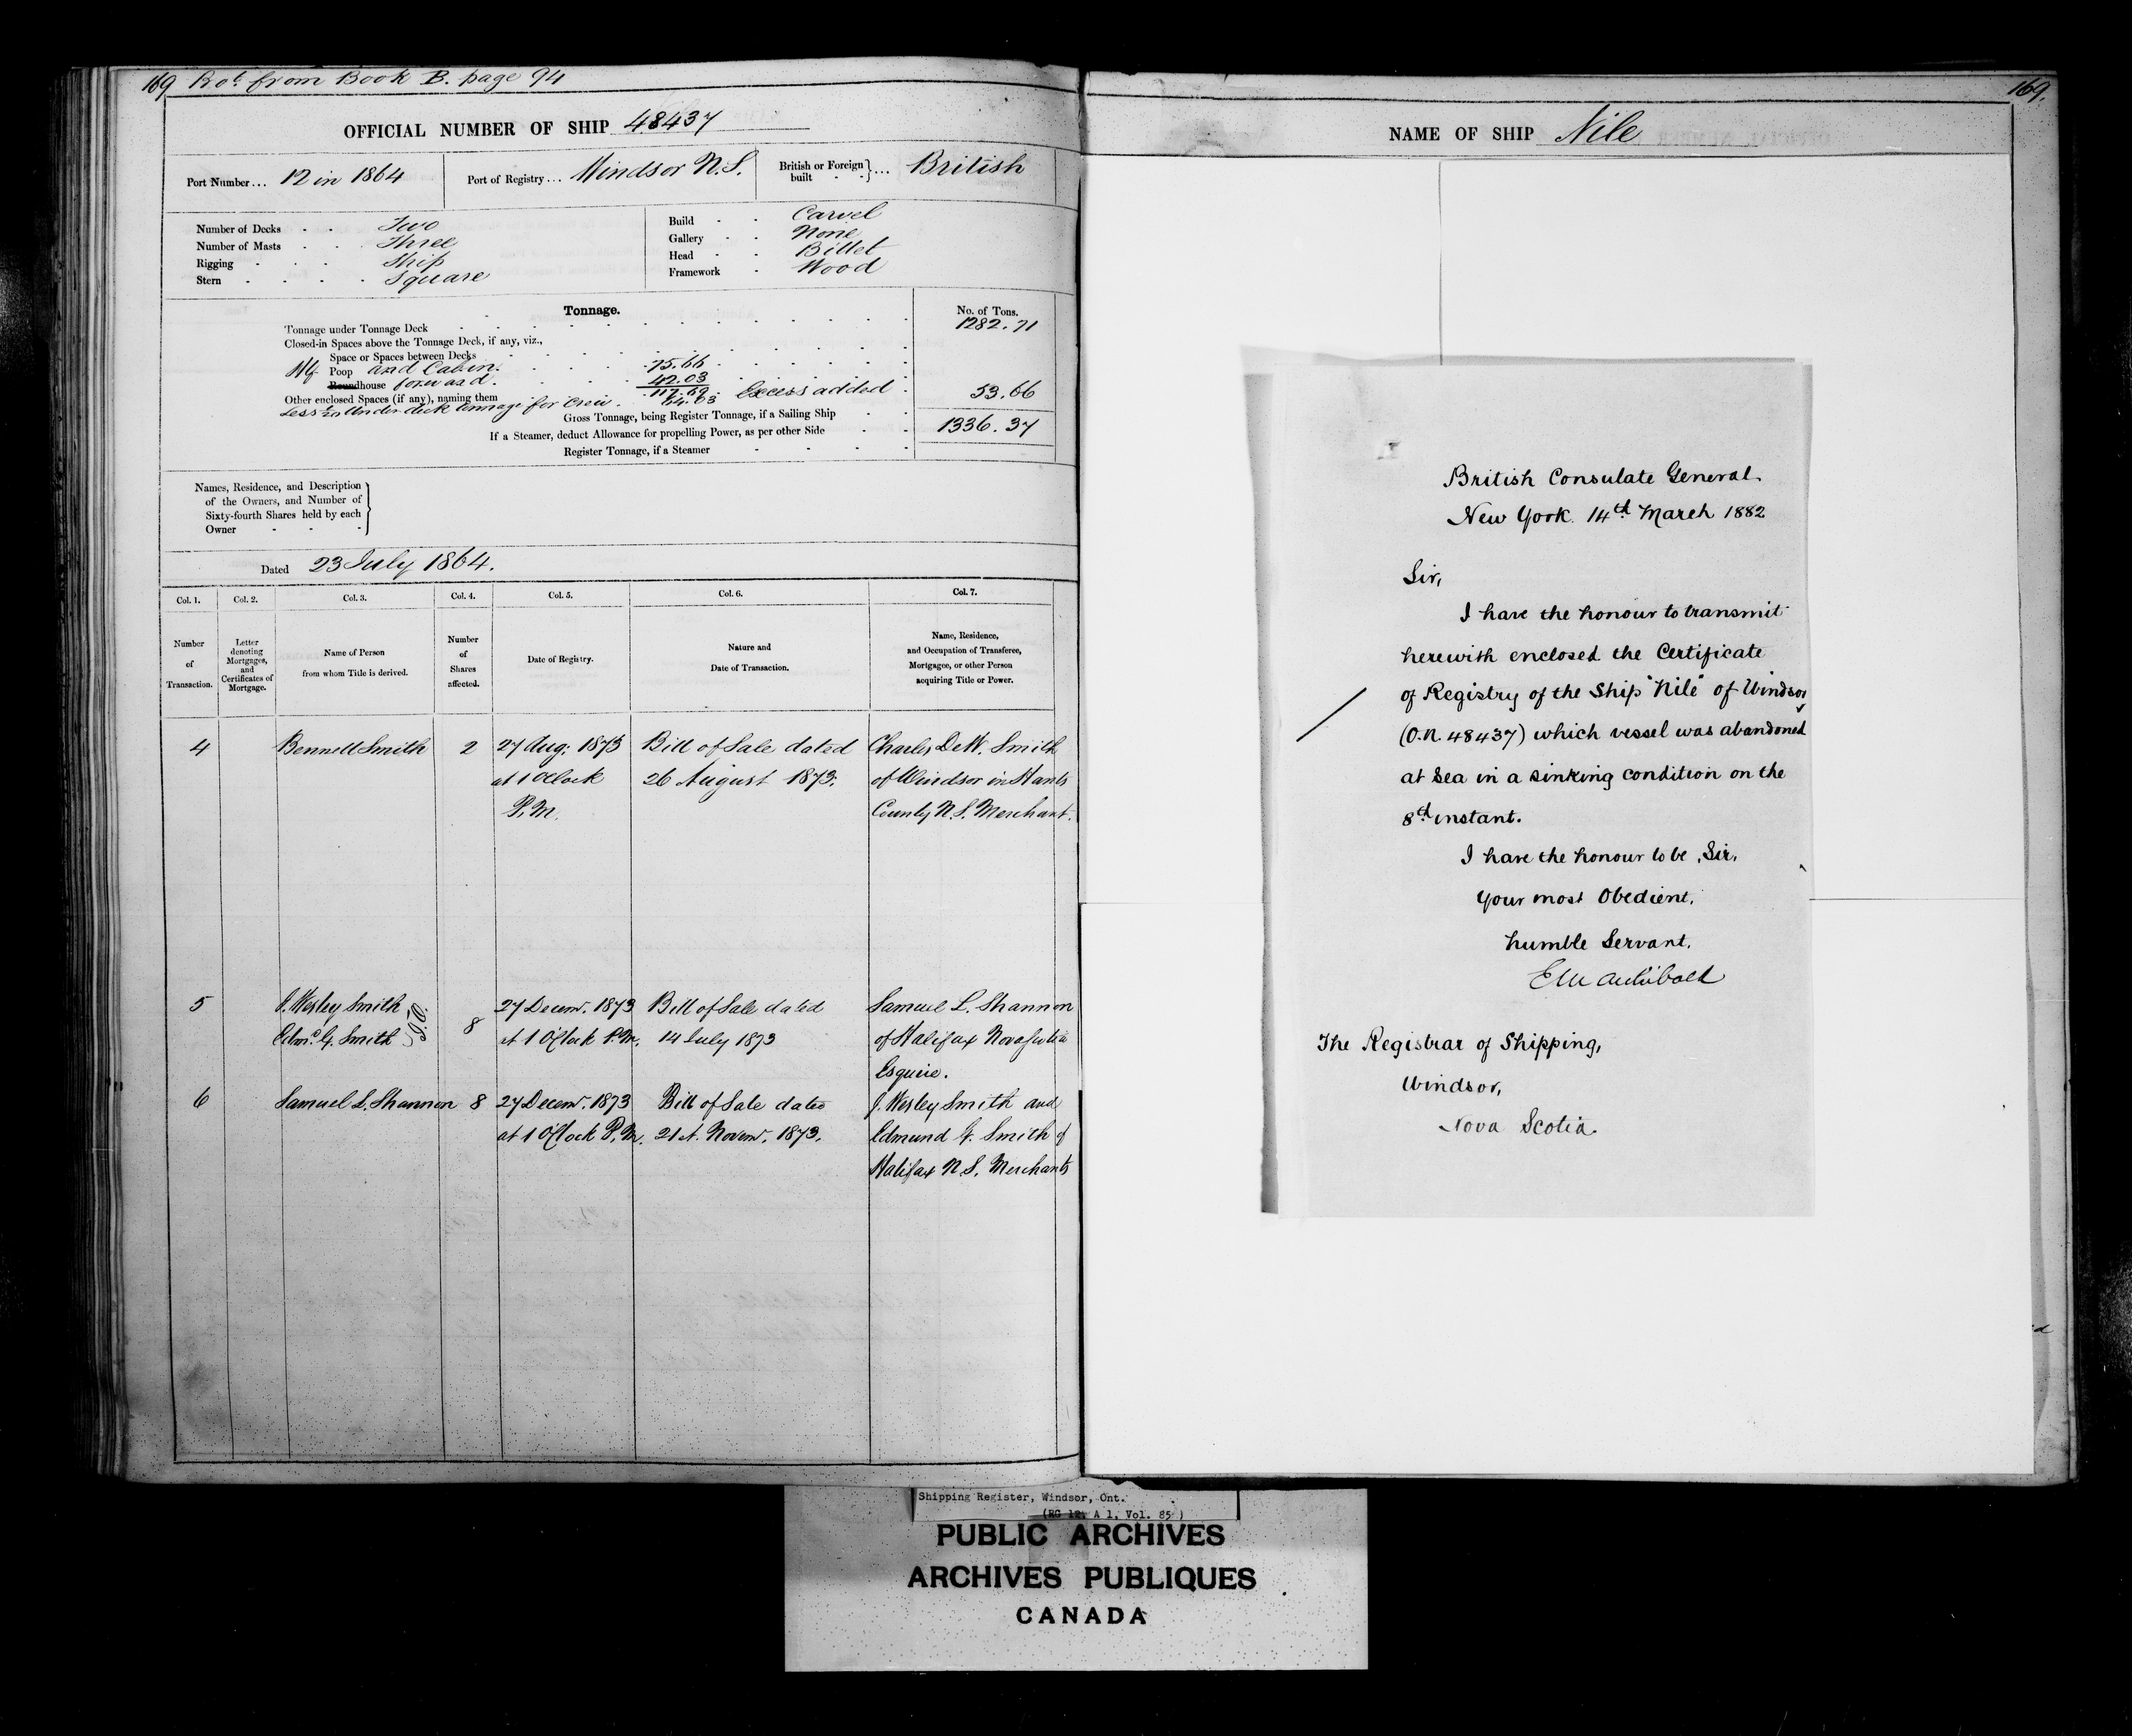 169 Bot from Book B. page 94
OFFICIAL NUMBER OF SHIP 48437
Port Number... 12 in 1864
Port of Registry... Windsor N.S.
British or Foreign built } ... British
Number of Decks Two
Number of Masts Three
Rigging Ship
Stern Square
Build Carvel
Gallery None
Head Billet
Framework Wood
Tonnage.
No. of Tons.
Tonnage under Tonnage Deck 1282.71
Closed-in Spaces above the Tonnage Deck, if any, viz.,
Space or Spaces between Decks
Hf Poop and Cabin. 75.66
Roundhouse forward. 42.03
Other enclosed Spaces (if any), naming them 117.69 Excess added 53.66
Less 1/20 Under deck tonnage for Crew. 64.03
Gross Tonnage, being Register Tonnage, if a Sailing Ship 1336.37
If a Steamer, deduct Allowance for propelling Power, as per other Side
Register Tonnage, if a Steamer
Names, Residence, and Description
of the Owners, and Number of
Sixty-fourth Shares held by each
Owner
Dated 23 July 1864.
Col. 1. Col. 2. Col. 3. Col. 4. Col. 5. Col. 6. Col. 7.
Number of Transaction.
Letter denoting Mortgages, and Certificates of Mortgage.
Name of Person from whom Title is derived.
Number of Shares affected.
Date of Registry.
Nature and Date of Transaction.
Name, Residence, and Occupation of Transferee, Mortgagee, or other Person acquiring Title or Power.
4 Bennett Smith 2 27 Aug: 1873 Bill of Sale dated Charles DeW. Smith
at 1 OClock 26 August 1873. of Windsor in Hants
P.M. County N.S. Merchant.
5 J. Wesley Smith 27 Decemr. 1873 Bill of Sale dated Samuel L. Shannon
Edmd. G. Smith J.O. 8 at 1 O'Clock P.M. 14 July 1873 of Halifax Nova Scotia
Esquire.
6 Samuel L. Shannon 8 27 Decemr. 1873 Bill of Sale dated J. Wesley Smith and
at 1 O'Clock P.M. 21st. Novemr. 1873. Edmund G. Smith of
Halifax N.S. Merchants
169.
NAME OF SHIP Nile
British Consulate General.
New York. 14th March 1882
Sir,
I have the honour to transmit
herewith enclosed the Certificate
of Registry of the Ship "Nile" of Windsor
(O.N. 48437) which vessel was abandoned
at sea in a sinking condition on the
8th instant.
I have the honour to be, Sir,
Your most Obedient,
humble Servant.
E M Archibald
The Registrar of Shipping,
Windsor,
Nova Scotia.
Shipping Register, Windsor, Ont.
(RG 12, A 1, Vol. 85)
PUBLIC ARCHIVES
ARCHIVES PUBLIQUES
CANADA